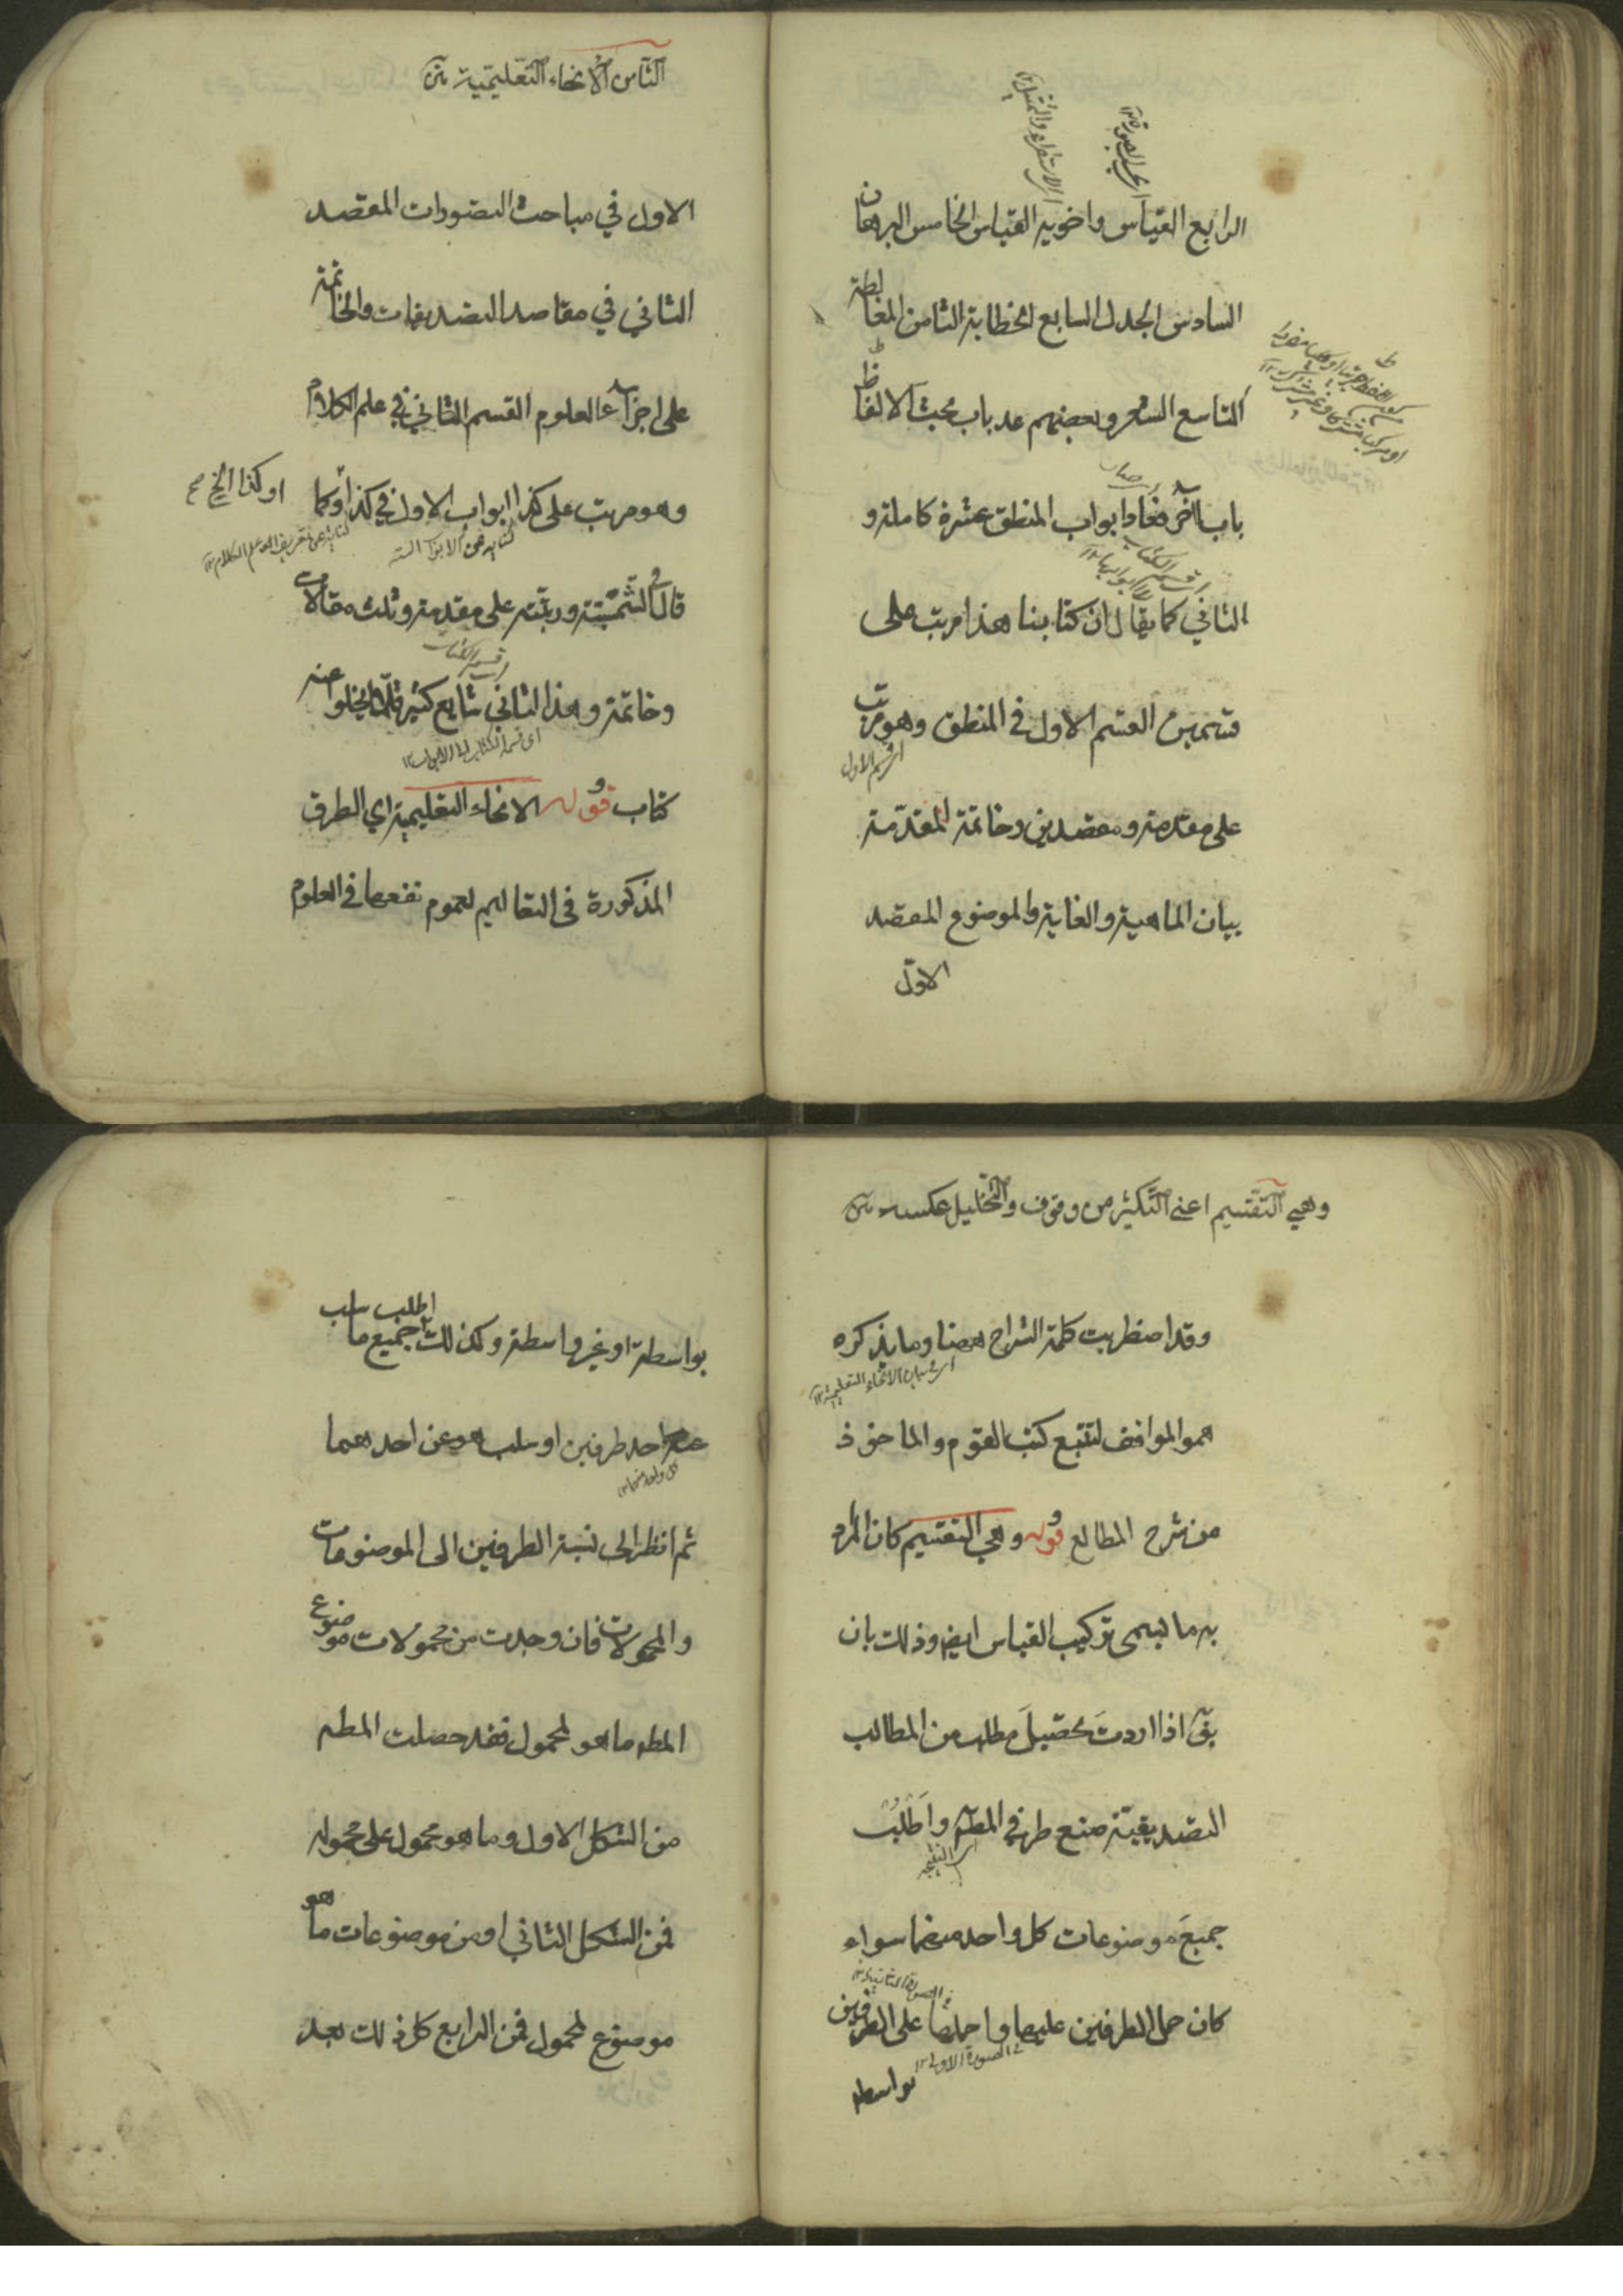 الرابع القياس واخويه القياس الخامس البرهان
السادس الجدل السابع الخطابة الثامن المغالطة
التاسع الشعر وبعضهم عد باب بحث الالفاظ
باب آخر فعاد ابواب المنطق عشرة كاملة و
اى قسم الكتاب
الثاني كما يقال ان كتابنا هذا مرتب على
قسمين القسم الاول في المنطق وهو مرتب
اى قسم الاول
على مقدمة ومقصدين وخاتمة المقدمة
بيان الماهية والغاية والموضوع المقصد
الاول
الثامن الانحاء التعليمية
الاول في مباحث التصورات المقصد
الثاني في مقاصد التصديقات والخاتمة
على اجزاء العلوم القسم الثاني في علم الكلام
وهو مرتب على كذا ابواب الاول في كذا وكما
او كذا الخ صح
قال في الشمسية ورتبته على مقدمة وثلث مقالات
وخاتمة وهذا الثاني شايع كثير قلما يخلو عنه
كتاب قوله الانحاء التعليمية اي الطرق
المذكورة في التعاليم لعموم نفعها في العلوم
وهي التقسيم اعني التكثير من فوق والتحليل عكسه
وقد اضطربت كلمة الشراح ههنا وما يذكره
اى بيان الانحاء التعليمية
هو الموافق لتتبع كتب القوم والماخوذ
من شرح المطالع قوله وهي التقسيم كان المراد
به ما يسمى تركيب القياس ايضا وذلك بان
يق اذا اردت تحصيل مطلب من المطالب
التصديقية ضع طرفي المط واطلب
اى النتيجه
جميع موضوعات كل واحد منهما سواء
كان حمل الطرفين عليها او حملها على الطرفين
في الصورة الاولى
بواسطه
بواسطة او غير واسطة وكذلك اطلب جميع ما سلب
عنه احد طرفين او سلب هو عن احدهما
ثم انظر الى نسبة الطرفين الى الموضوعات
والمحمولات فان وجدت من محمولات موضوع
المط ما هو لمحمول فقد حصلت المط
من الشكل الاول وما هو محمول على محموله
فمن الشكل الثاني او من موضوعات ما هو
موضوع لمحمول فمن الرابع كل ذلك بعد